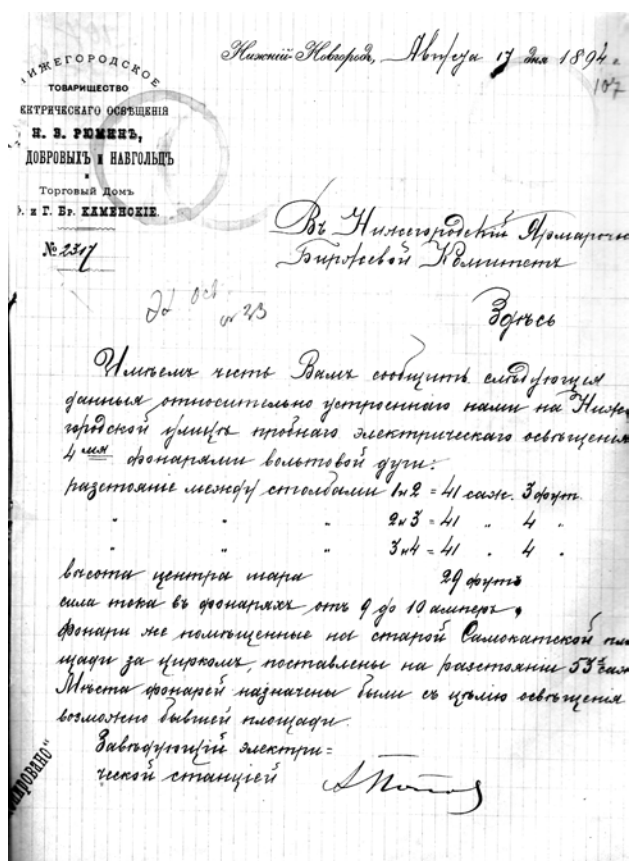 НИЖЕГОРОДСКОЕ
ТОВАРИЩЕСТВО
ЕКТРИЧЕСКАГО ОСВѢЩЕНІЯ
Н. В. РЮМИНЪ,
ДОБРОВЫХЪ и НАБГОЛЬЦЪ
и
Торговый Домъ
. и Г. Бр. КАМЕНСКІЕ.
№ 2317
Нижній-Новгородъ, Августа 17 дня 1894 г.
107
Въ Нижегородскій Ярмарочн
Биржевой Комитетъ
Здѣсь
23
Имѣемъ честь Вамъ сообщить слѣдующія
данныя относительно устроеннаго нами на Ниже
городской улицѣ пробнаго электрическаго освѣщенія
4мя фонарями вольтовой дуги:
разстояніе между столбами 1 и 2 = 41 саж. 3 фут.
" " " 2 и 3 = 41 " 4 "
" " " 3 и 4 = 41 " 4 "
высота центра шара 29 футъ
сила тока въ фонаряхъ отъ 9 до 10 амперъ,
Фонари же помѣщенные на старой Самокатской пло
щади за циркомъ, поставлены на разстояніи 53 саж
Мѣста фонарей назначены были съ цѣлію освѣщенія
возможно бывшей площади.
Завѣдующій электри=
ческой станціей
АПопов
ировано"